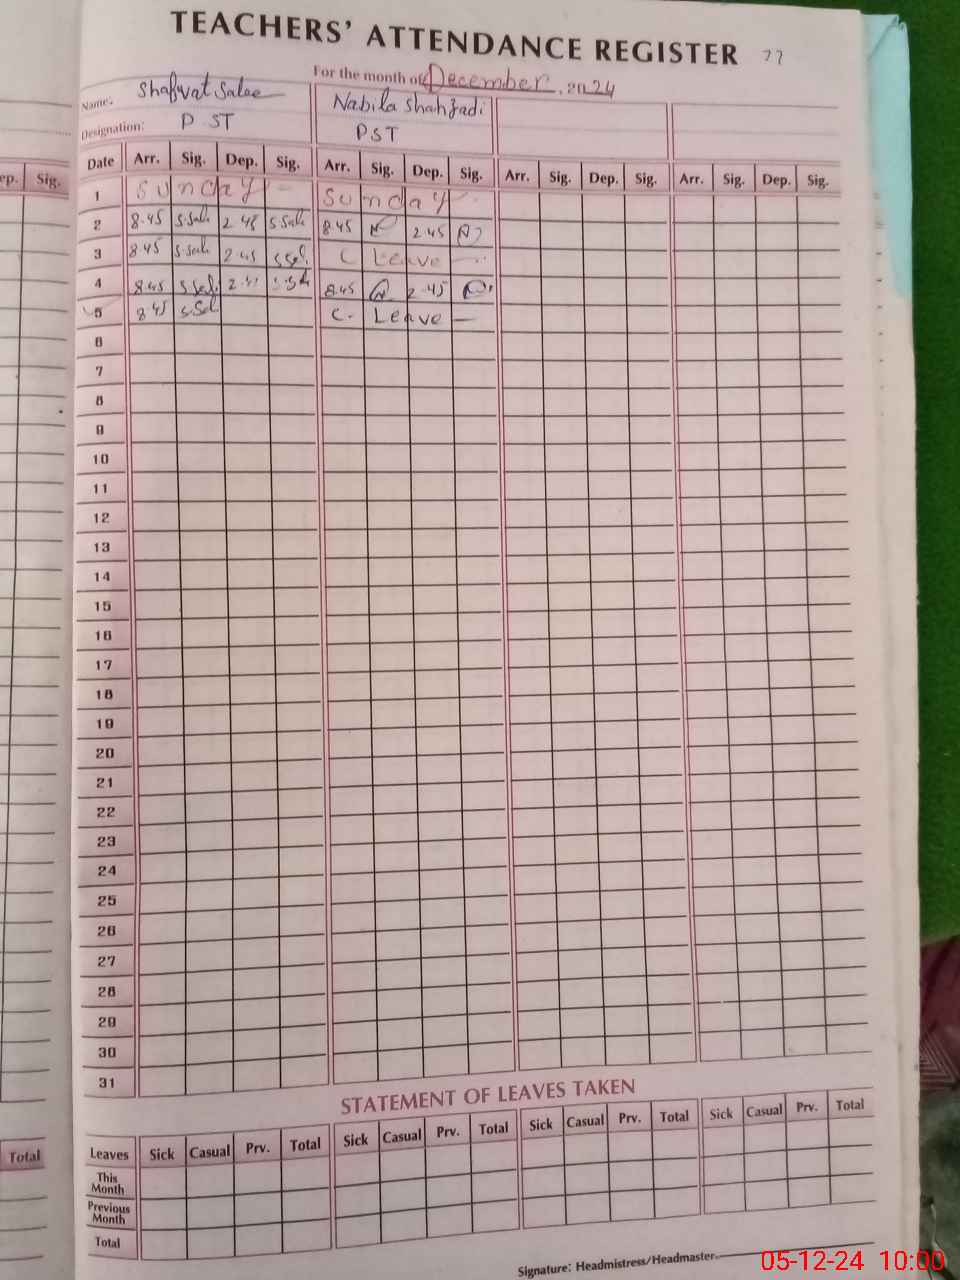 TEACHERS' ATTENDANCE REGISTER 77
For the month of December, 2024
Name: Shafwat Salee Nabila Shahzadi
Designation: P ST PST
ep. Sig. Date Arr. Sig. Dep. Sig. Arr. Sig. Dep. Sig. Arr. Sig. Dep. Sig. Arr. Sig. Dep. Sig.
1 Sunday - Sunday
2 8.45 S.Sale 2.45 S Sale 8.45 2.45
3 8.45 2.45 C Leave
4 8.45 8.45 2.45
5 8.45 S Sal C. Leave
6
7
8
9
10
11
12
13
14
15
16
17
18
19
20
21
22
23
24
25
26
27
28
29
30
31
STATEMENT OF LEAVES TAKEN
Total Leaves Sick Casual Prv. Total Sick Casual Prv. Total Sick Casual Prv. Total Sick Casual Prv. Total
This Month
Previous Month
Total
Signature: Headmistress/Headmaster
05-12-24 10:00